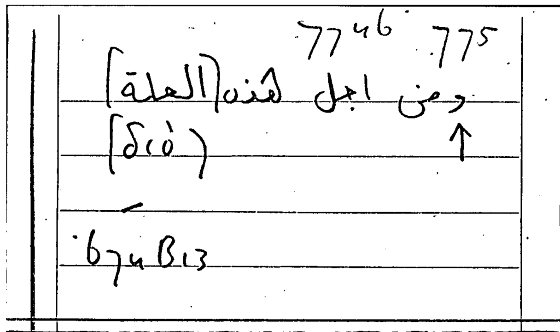 7746 775
ومن اجل هذه [العلة]
↑
[διό]
674B13